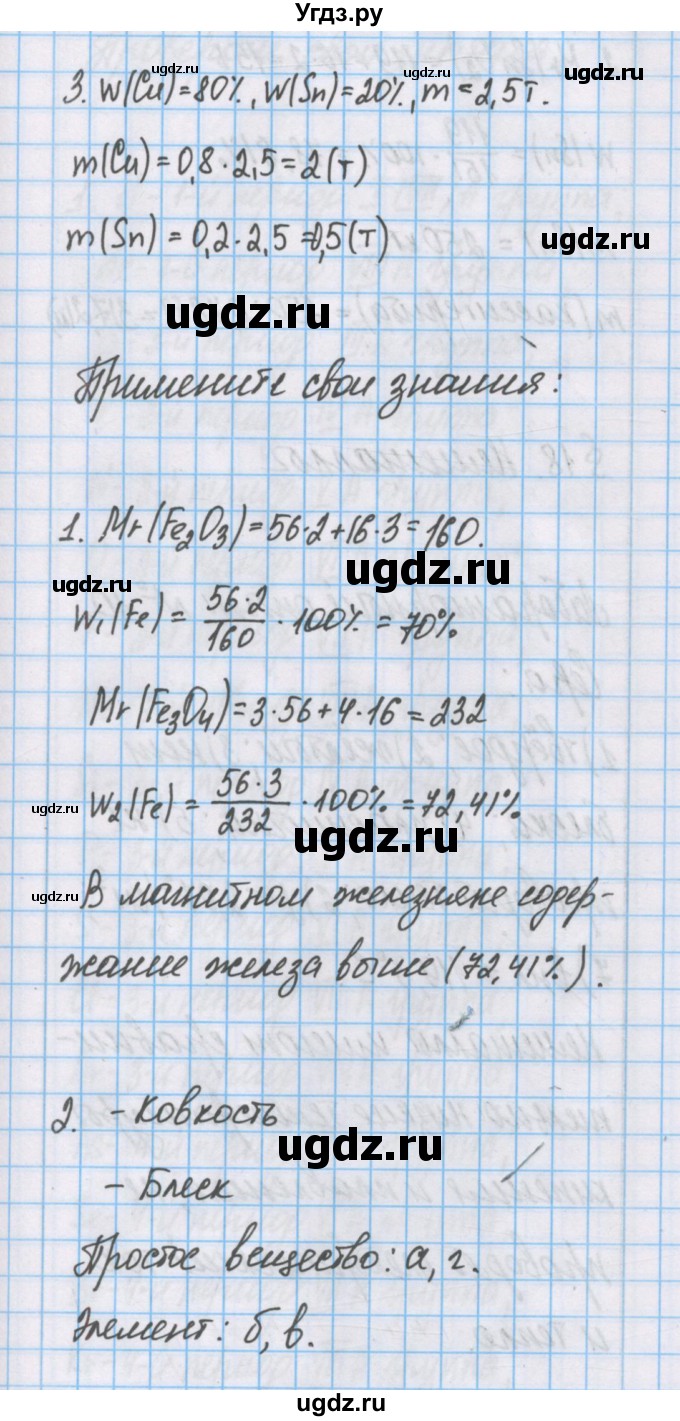 Угдз.ру
3. W(Cu)=80%, W(Sn)=20%, m=2,5т.
m(Cu)=0,8·2,5=2(т)
m(Sn)=0,2·2,5=0,5(т)
ugdz.ru
ugdz.ru
Примените свои знания:
1. Mr(Fe₂O₃)=56·2+16·3=160.
ugdz.ru
ugdz.ru
W₁(Fe)= 56·2/160 ·100% =70%
Mr(Fe₃O₄)=3·56+4·16=232
W₂(Fe)= 56·3/232 ·100% =72,41%
ugdz.ru
ugdz.ru
ugdz.ru
В магнитном железняке содер-
жание железа выше (72,41%).
2. - Ковкость
ugdz.ru
- Блеск
Простое вещество: а, г.
ugdz.ru
Элемент: б, в.
ugdz.ru
ugdz.ru